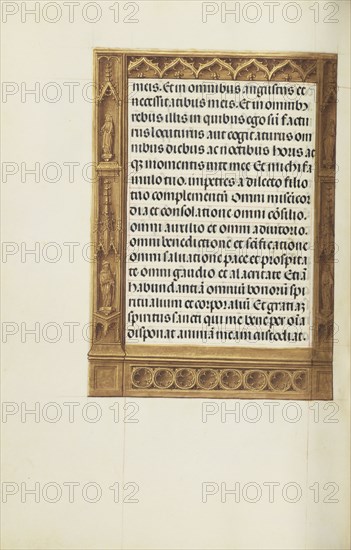 PHOTO12 PHOTO12 PHOTO12
meis. Et in omnibus angustiis et
necessitatibus meis. Et in omnibꝫ
rebus illis in quibus ego sū factu
rus locuturus aut cogitaturus om
nibus diebus ac noctibus horis at
qꝫ momentis vite mee Et michi fa
mulo tuo. impetres a dilecto filio
tuo complementū Omni misericor
dia et consolatione omni cōsilio.
omni auxilio et omni adiutorio.
omni benedictione et sc̄ificatione
omni saluatione pace et prosperita
te omni gaudio et alacritate Etiā
habundantiam omniū bonorū spi
ritualium et corporaliū Et gratiā
spiritus sancti qui me bene per oīa
disponat animā meam custodiat.
PHOTO12 PHOTO12 PHOTO12